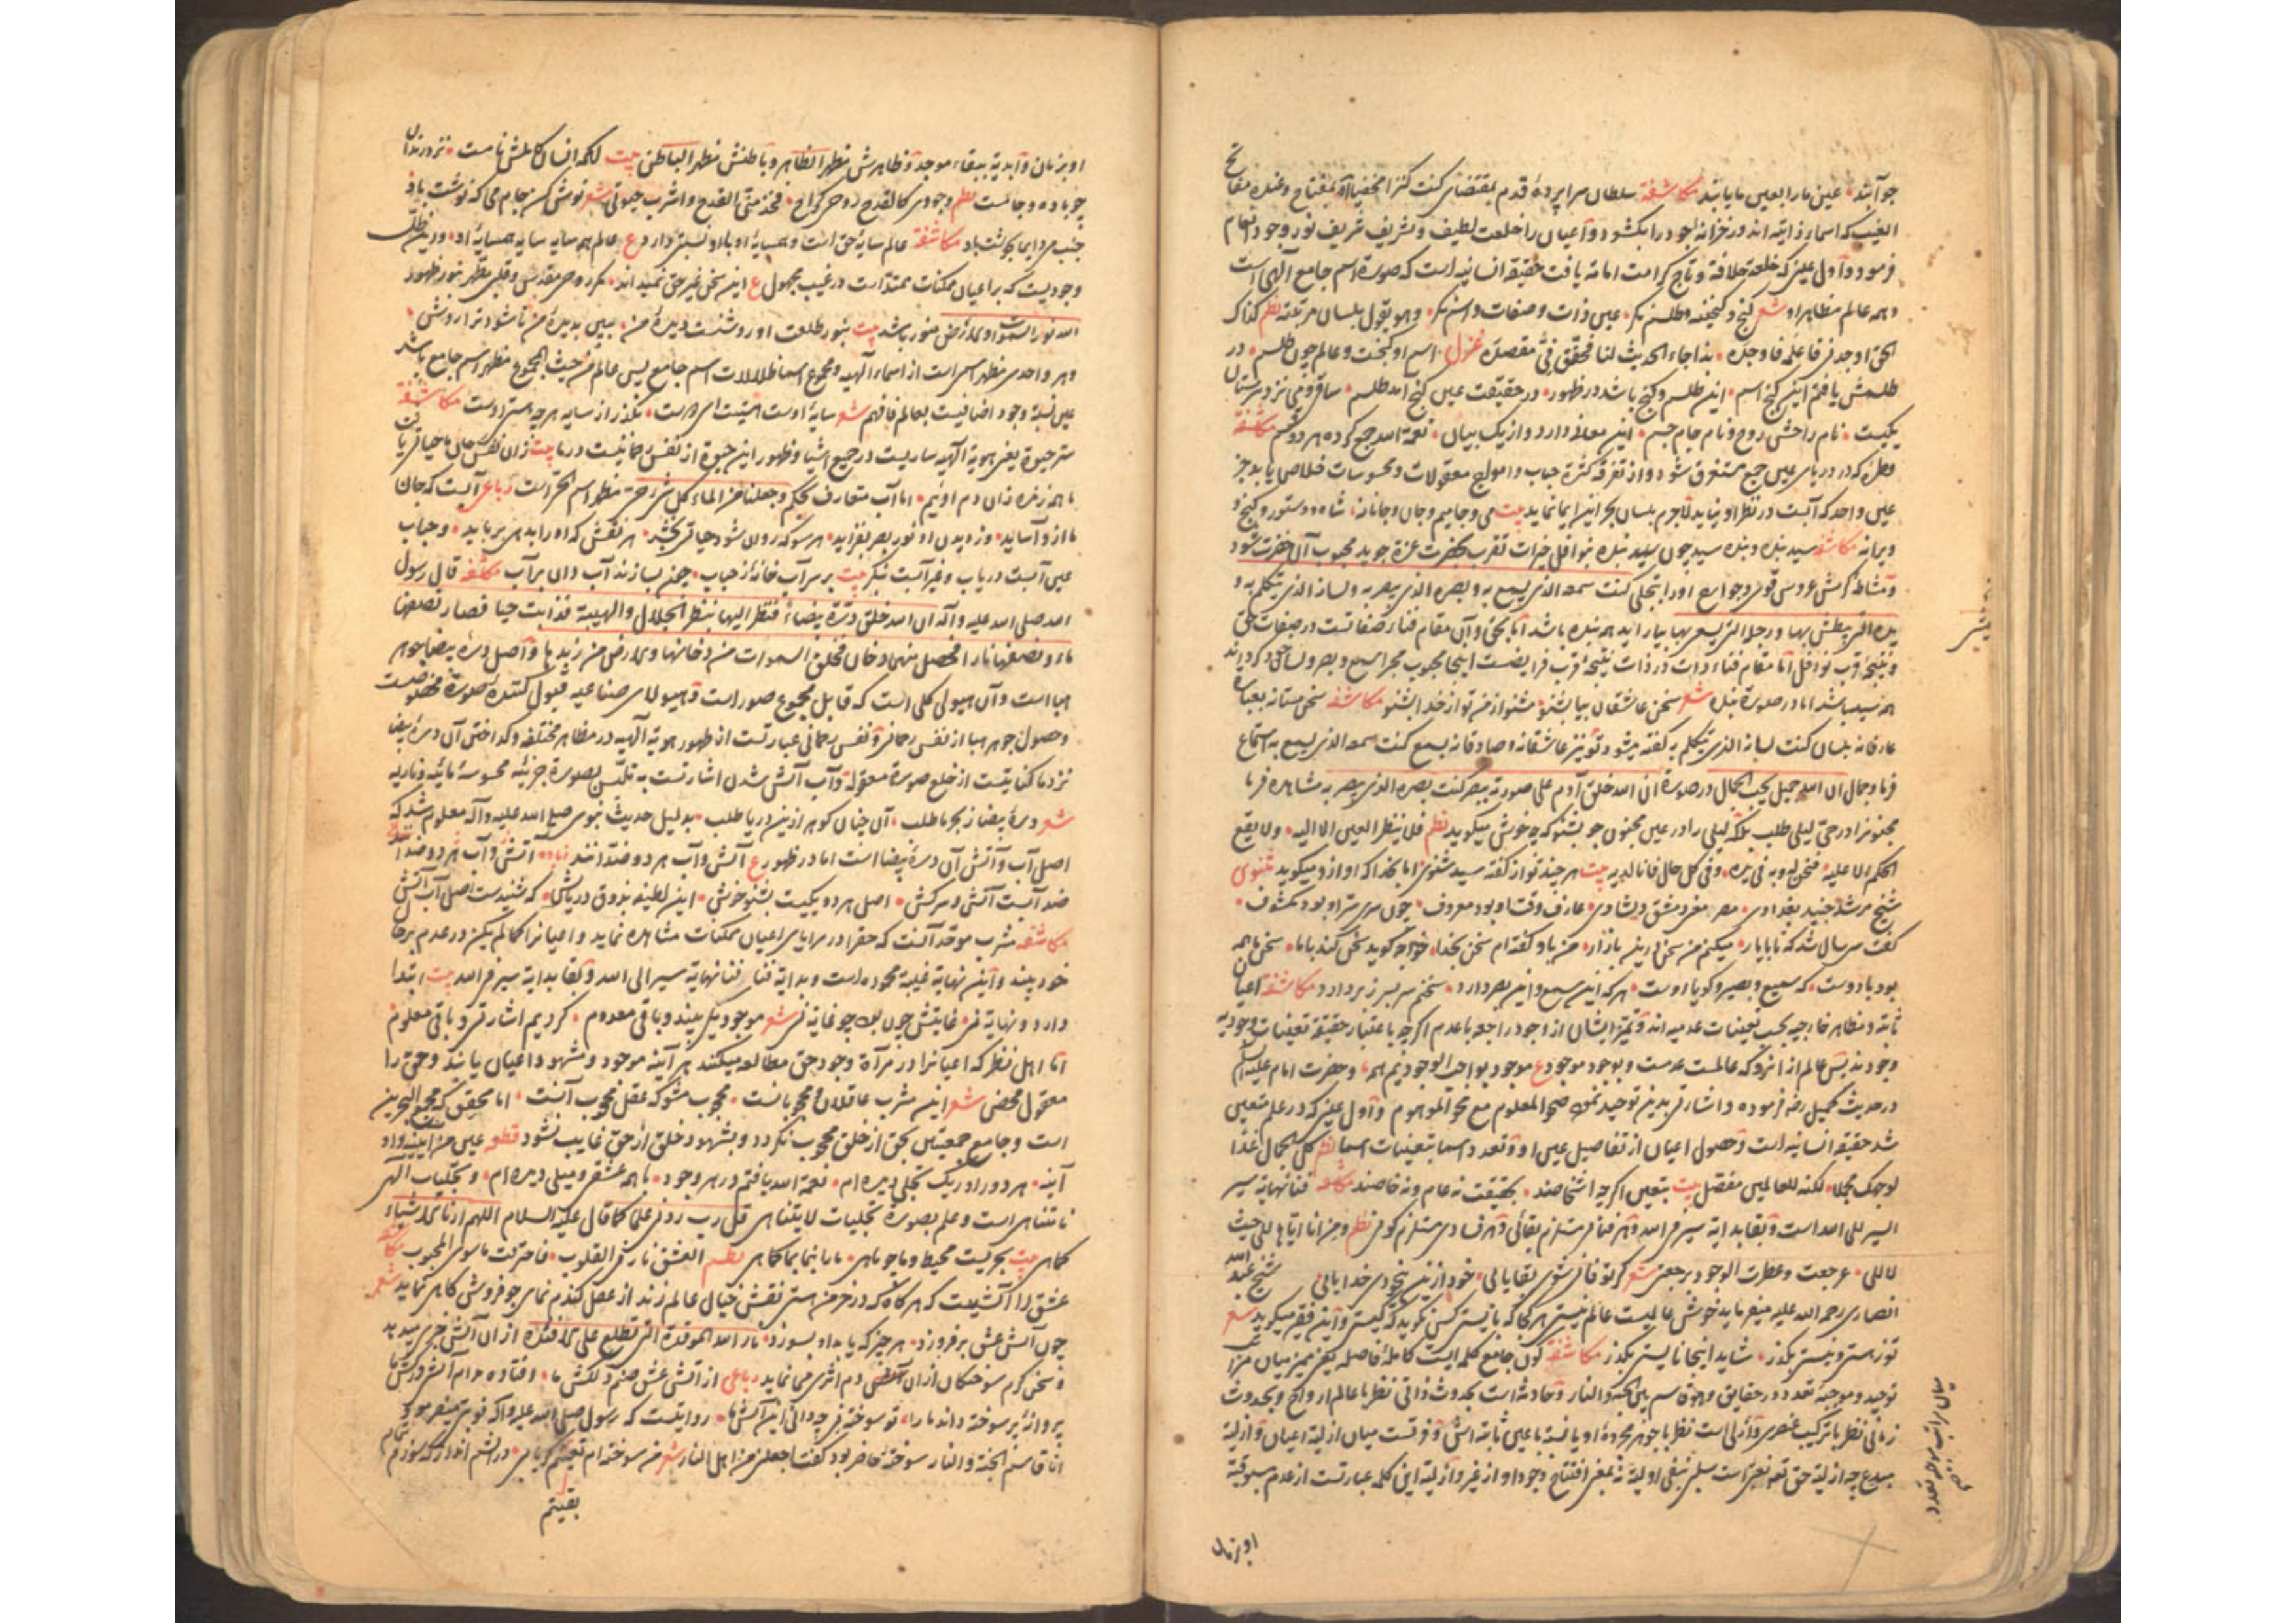 جو آیند عین ما را بعین ما یابند مکاشفة سلطان سراپردهٔ قدم بمقتضای کنت کنزا مخفیا بمفتاح وعنده مفاتح
الغیب که اسماء ذاتیه‌اند در خزانهٔ جود را بکشود و اعیان را خلعت لطیف و تشریف شریف نور وجود انعام
فرمود و اول عینی که خلعت خلافة و تاج کرامت امامة یافت حقیقة انسانیه است که صورة اسم جامع الهی است
و همه عالم مظاهر او شعر کنج و کنجینه و طلسم نکر عین ذات و صفات و اسم نکر وهو یقول بلسان مرتبته نظم کذاک
الحق اوجدنی فاعلمه فاوجده بذا جاء الحدیث لنا فحقق فی مقصده غزل اسم او کنجست و عالم چون طلسم در
طلسمش یافتم این کنج اسم این طلسم و کنج باشد در ظهور در حقیقت عین کنج آمد طلسم ساقی و می نزد مستان
یکیست نام راحش روح و نام جام جسم این معانی دارد و از یک بیان نعمة الله جمع کرده هر دو قسم مکاشفة
قطره که در دریای عین جمع مستغرق شود و از تفرقه کثرة حباب و امواج معقولات و محسوسات خلاصی یابد جز
عین واحد که آبست در نظر او نیاید لاجرم بلسان بحر این ایما نماید بیت می و جامیم و جان و جانانه شاه و دستور و کنج و
ویرانه مکاشفه سید بنده و بنده سید چون سید بنده بنوافل خیرات تقرب بحضرت عزة جوید محبوب آن حضرت شود
و مشاطهٔ کرمش عروس قوی و جوارح او را بتجلی کنت سمعه الذی یسمع به و بصره الذی یبصر به و لسانه الذی یتکلم به و
یده التی یبطش بها و رجله التی یسعی بها بیاراید همه بنده باشد اما بحق و آن مقام فناء صفاتست در صفات حق
و نتیجه قرب نوافل اما مقام فناء ذات در ذات نتیجهٔ قرب فرایضست اینجا محبوب محب را سمع و بصر و لسان خود کرداند
همه سید باشد اما در صورة بنده شعر سخن عاشقان بیا بشنو مشنو از من تو از خدا بشنو مکاشفه سخن مستانه بعبارة
عارفانه بلسان کنت لسانه الذی یتکلم به کفته میشود تو نیز عاشقانه و صادقانه بسمع کنت سمعه الذی یسمع به استماع
فرما و جمال ان الله جمیل یحب الجمال در صورة ان الله خلق آدم علی صورته ببصر کنت بصره الذی یبصر به مشاهده فرما
مجنونرا در حی لیلی طلب بلکه لیلی را در عین مجنون جو بشنو که چه خوش میکوید نظم فلا ینظر العین الا الیه ولا یقع
الحکم الا علیه فنحن له وبه فی یده وفی کل حال فانا لدیه بیت هر چند تو از کفته سید شنوی اما بخدا که او ازو میکوید مثنوی
شیخ مرشد جنید بغدادی مصر معنی دمشق دلشادی عارف وقت او بود معروف چون سری سر او بود مکشوف
کفت سی سال شد که تا با یار میکنم من سخن درین بازار من باو کفته‌ام سخن بخدا خواجه کوید سخن کند با ما سخن ما همه
بود با دوست که سمیع و بصیر و کویا اوست هر که این سمع و این بصر دارد سخنم سر بسر ز بر دارد مکاشفة اعیان
ثابته و مظاهر خارجیه بحسب تعینات عدمیه‌اند و تمیز ایشان از وجود راجعه با عدم اکرچه باعتبار حقیقة تعینات وجودیه
وجودند پس عالم از انرو که عالمست عدمست و بوجود موجود ع موجود بواجب الوجودیم همه و حضرت امام علیه السلام
در حدیث کمیل رض فرموده و اشارتی بدین توحید نمود صحو المعلوم مع محو الموهوم و اول عینی که در علم متعین
شد حقیقة انسانیه است و حصول اعیان از تفاصیل عین او و تعدد اسما بتعینات اسما نظم کل الجمال غذا
لوجهک مجملا لکنه للعالمین مفصل بیت بتعین اکرچه اشخاصند بحقیقت نه عام و نه خاصند مکاشفه فنا نهایة سیر
السیر الی الله است و بقا بدایة سیر فی الله و هر فنائی مستلزم بقائی و هر فسادی مستلزم کونی نظم ومن انا ایاها الی حیث
لا الی عرجت وعطرت الوجود برجعتی شعر کر تو فانی شوی بقا یابی خود ازین بیخودی خدا یابی شیخ عبد الله
انصاری رحمه الله علیه میفرماید خوش عالمیست عالم نیستی هر کجا که بایستی کس نکوید که کیستی و این فقیر میکوید شعر
تو ز هستی و نیستی بکذر شاید اینجا نایستی بکذر مکاشفة کون جامع کلمه ایست کامله فاصله یعنی ممیز میان مرآة
توحید و موجبهٔ تعدد در حقایق
زمانی نظر با ترکیب عنصری و ازلی است نظر با جوهر مجردهٔ او یا نسبة با عین ثابته اش و فرقست میان ازلیة اعیان و ازلیة
مبدع چه ازلیة حق تعه نعتی است سلبی بنفی اولیة بمعنی افتتاح وجود او از غیر و ازلیة این کلمه عبارتست از عدم مسبوقیة
او بزمان
او بزمان و ابدیة ببقاء موجد و ظاهرش مظهر الظاهر و باطنش مظهر الباطن بیت آنکه انسان کاملش نامست نزد رندان
چو باده و جامست نظم وجودی کالقدح روحی کراح فخذ منی القدح واشرب حیوتی شعر نوش کن جام می که نوشت باد
جنب می دایما بکاشت باد مکاشفة عالم سایهٔ حق است و همسایهٔ او با او نسبتی دارد ع عالم همه سایه سایه همسایهٔ او و این ظل
وجودیست که بر اعیان ممکنات ممتد است در غیب مجهول ع این سخن غیر حق نمیداند مکر روحی مقدس و قلبی مطهر بنور ظهور
الله نور السموات والارض منور باشد بیت بنور طلعت او روشنست دیدهٔ من ببین بدیدهٔ من تا شود ترا روشن
و هر واحدی مظهر اسمی است از اسماء الهیه و مجموع اسما ظلالات اسم جامع پس عالم من حیث المجموع مظهر اسم جامع باشد
عین نسبة وجود اضافیست بعالم فافهم شعر سایهٔ اوست هستیت ای دوست بکذر از سایه هرچه هست اوست مکاشفة
سر حیوة یعنی هویة الهیه ساریست در جمیع اشیا و ظهور این حیوة از نفس رحمانیست در ما بیت زان نفس جان ما حیاتی یافت
ما همه زنده زان دم اوئیم اما آب متعارف بحکم وجعلنا من الماء کل شئ حی مظهر اسم الحی است رباعی آبیست که جان
ما ازو آساید وز دیدن او نور بصر بفزاید هر سو که روان شود حیاتی بخشد هر نقش که او را بدهی برباید و حباب
عین آبست دریاب و غیر آبست نیکو بیت بر سر آب خانهٔ ز حباب چون بسازند آب دان بر آب مکاشفه قال رسول
الله صلی الله علیه وآله ان الله خلق درة بیضاء فنظر الیها بنظر الجلال والهیبة فذابت حیا فصار نصفها
ماء ونصفها نارا فحصل منهما دخان فخلق السموات من دخانها والارض من زبدها و اصل درهٔ بیضا جوهر
هبا است و آن هیولی کلی است که قابل مجموع صور است و هیولای صناعیه قبول کنندهٔ صورة مخصوصست
و حصول جوهر هبا از نفس رحمانی و نفس رحمانی عبارتست از ظهور هویة الهیه در مظاهر مختلفه و کداختن آن درهٔ بیضا
نزد ما کنایتست از خلع صورة معقوله و آب آتش شدن اشارتست به تلبس بصورة جزئیه محسوسهٔ مائیه و ناریه
شعر درهٔ بیضا ز بحر ما طلب آن چنان کوهر ازین دریا طلب بدلیل حدیث نبوی صلی الله علیه وآله معلوم شد که
اصل آب و آتش آن درهٔ بیضا است اما در ظهور ع آتش و آب هر دو ضدانند
ضد آبست آتش و سرکش اصل هر دو یکیست بشنو خوش این لطیفه بذوق دریابش که شنیدست اصل آب آتش
مکاشفه مشرب موحد آنست که حقرا در مرایای اعیان ممکنات مشاهده نماید و اعیانرا کما لم یکن در عدم بر جا
خود بیند و این نهایة غیبة محموده است و بدایة فنا فنا نهایة سیر الی الله و بقا بدایة سیر فی الله بیت ابتدا
دارد و نهایة نی غایتش چون بود چو غایة نی شعر موجود یکی بیند و باقی معدوم کردیم اشارتی و باقی معلوم
اما اهل نظر که اعیانرا در مرآة وجود حق مطالعه میکنند هر آینه موجود و مشهود اعیان یابند و حق را
معقول محض شعر این مشرب عاقلان محجوبانست محجوب مشو که عقل محجوب آنست اما محقق که مجمع البحرین
است و جامع جمعیتین بحق از خلق محجوب نکردد و بشهود خلق از حق غایب نشود قطعه عین من آینه و او
آینه هر دو را در یک تجلی دیده‌ام نعمة الله یافتم در هر وجود با همه عشقی و میلی دیده‌ام و تجلیات الهی
نامتناهی است و علم بصورة تجلیات لا یتناهی قل رب زدنی علما کما قال علیه السلام اللهم ارنا الاشیاء
کما هی بیت بحریست محیط و ما چو ماهی ما را بنما بما کما هی نظم العشق نار فی القلوب فاحترقت ما سوی المحبوب مکاشفه
عشق را آتشیست که هر کاه که در خرمن هستی نقش خیال عالم زند از عقل کندم نمای جو فروش کاهی نماید شعر
چون آتش عشق برفروزد هر چیز که یابد او بسوزد نار الله الموقدة التی تطلع علی الافئدة از ان آتش خبری میدهد
و سخن کرم سوختکان از ان آتشین دم اثری می نماید رباعی از آتش عشق صنم دلکش ما افتاده مدام آتش در کش ما
پروانهٔ پر سوخته داند ما را تو سوختهٔ نی چه دانی این آتش ما روایتست که رسول صلی الله علیه وآله نوبتی میفرمود
انا قاسم الجنة والنار سوختهٔ حاضر بود کفت اجعلنی من اهل النار شعر من سوخته‌ام
بقیتم